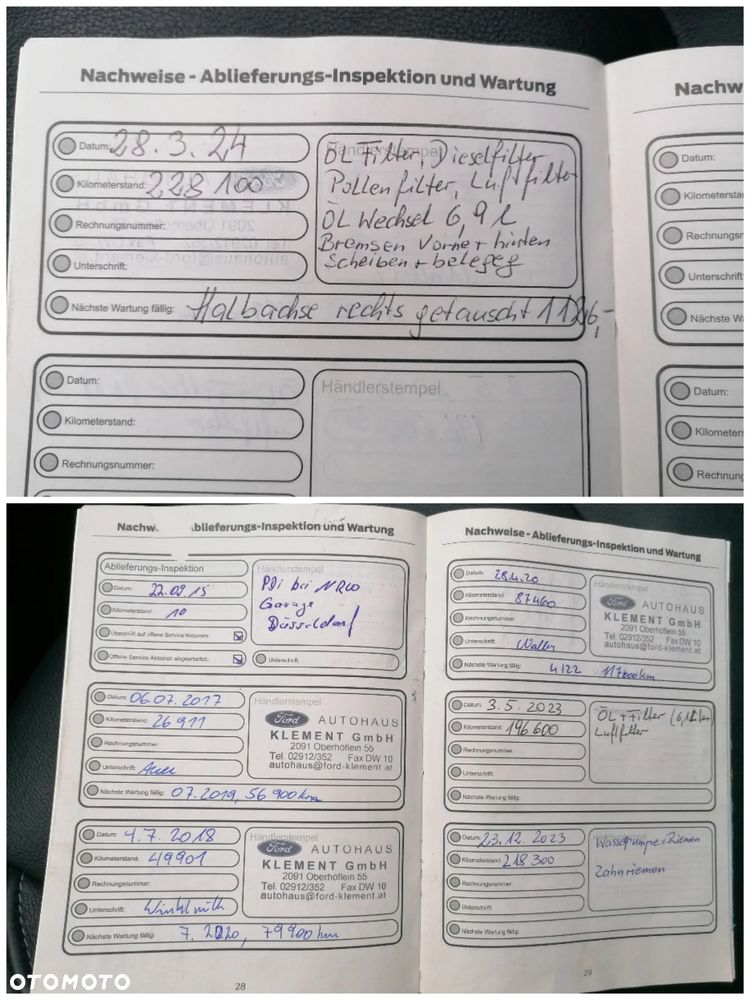 Nachweise - Ablieferungs-Inspektion und Wartung
Nachw
Datum: 28.3.24
Kilometerstand: 228100
Rechnungsnummer:
Unterschrift:
Händlerstempel
ÖL Filter, Dieselfilter
Pollenfilter, Luftfilter
ÖL Wechsel 6,9 l
Bremsen Vorne + hinten
Scheiben + belege
Nächste Wartung fällig: Halbachse rechts getauscht
Datum:
Kilometersta
Rechnungsn
Unterschrift
Nächste W
Datum:
Kilometerstand:
Rechnungsnummer:
Händlerstempel
Datum:
Kilometers
Rechnung
Nachw. blieferungs-Inspektion und Wartung
Ablieferungs-Inspektion
Datum: 22.09.15
Kilometerstand: 10
Überprüft auf offene Service Aktionen:
Offene Service Aktionen abgearbeitet:
Händlerstempel
PDi bei NRW
Garage
Düsseldorf
Unterschrift:
Datum: 06.07.2017
Kilometerstand: 26911
Rechnungsnummer:
Unterschrift: Auer
Händlerstempel
Ford AUTOHAUS
KLEMENT GmbH
2091 Oberhöflein 55
Tel. 02912/352 Fax DW 10
autohaus@ford-klement.at
Nächste Wartung fällig: 07.2019, 56 900km
Datum: 4.7.2018
Kilometerstand: 49901
Rechnungsnummer:
Unterschrift:
Händlerstempel
Ford AUTOHAUS
KLEMENT GmbH
2091 Oberhöflein 55
Tel. 02912/352 Fax DW 10
autohaus@ford-klement.at
Nächste Wartung fällig: 7.2020, 79900km
28
Nachweise - Ablieferungs-Inspektion und Wartung
Datum: 28.4.20
Kilometerstand: 87460
Rechnungsnummer:
Unterschrift: Waller
Händlerstempel
Ford AUTOHAUS
KLEMENT GmbH
2091 Oberhöflein 55
Tel. 02912/352 Fax DW 10
autohaus@ford-klement.at
Nächste Wartung fällig: 4/22 km
Datum: 3.5.2023
Kilometerstand: 196600
Rechnungsnummer:
Unterschrift:
ÖL + Filter
Luftfilter
Nächste Wartung fällig:
Datum: 23.12.2023
Kilometerstand: 218300
Rechnungsnummer:
Unterschrift:
Wasserpumpe + Riemen
Zahnriemen
Nächste Wartung fällig:
29
OTOMOTO